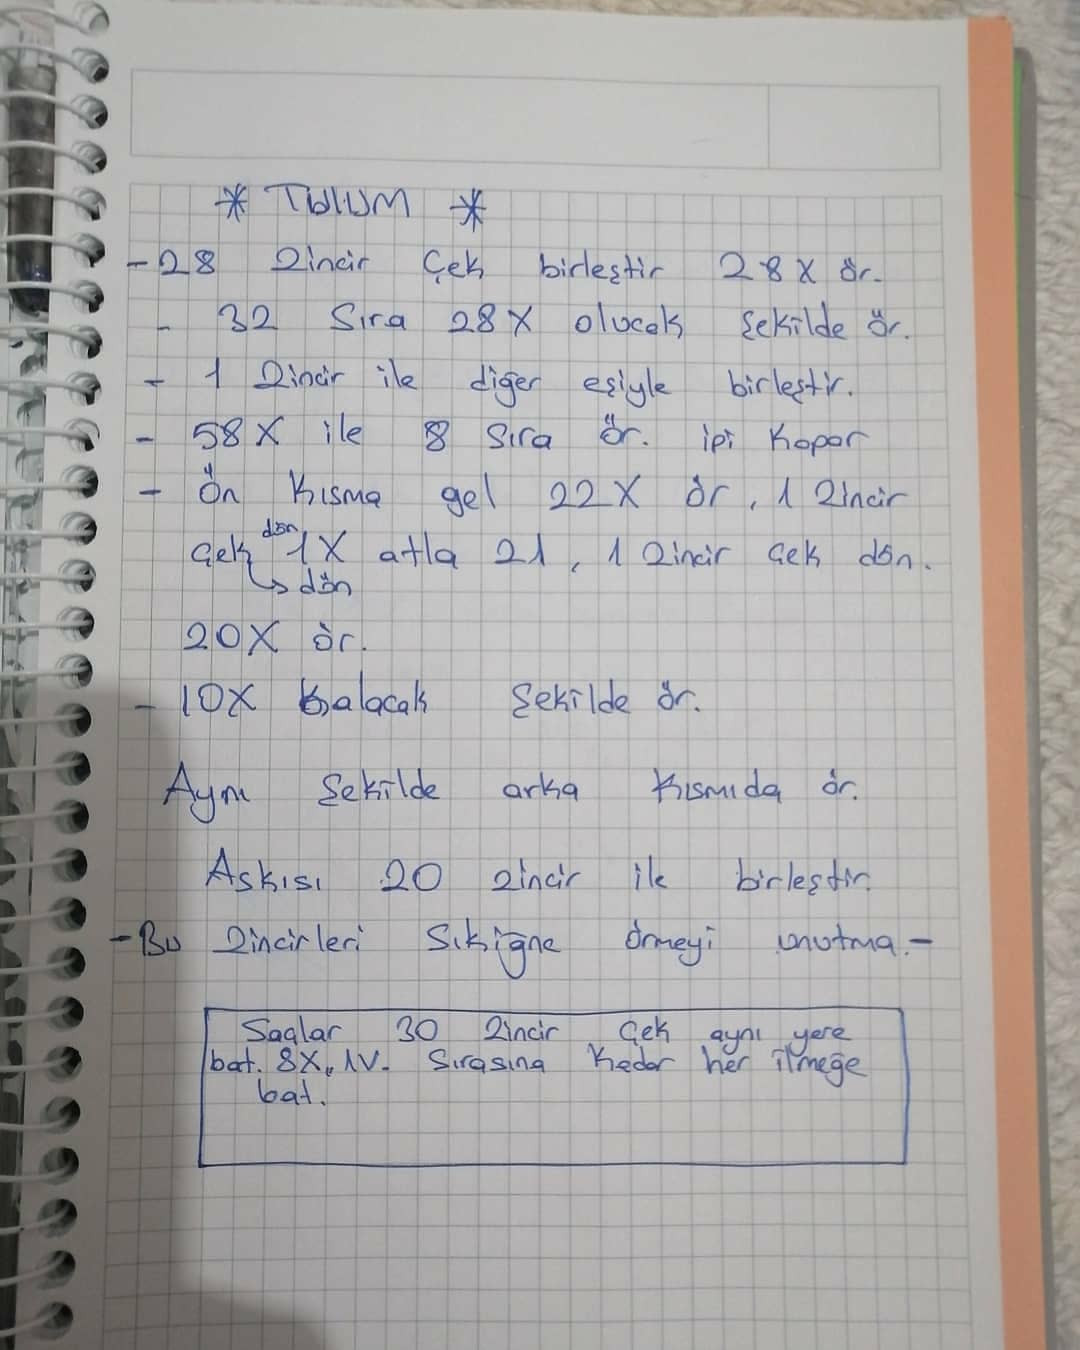 * TULUM *
- 28 Zincir Çek birleştir 28X ör.
- 32 Sıra 28X olucak Şekilde ör.
- 1 Zincir ile diğer eşiyle birleştir.
- 58X ile 8 Sıra ör. ipi Kopar
- Ön Kısma gel 22X ör, 1 Zincir
Çek dön 1X atla 21, 1 Zincir Çek dön.
↳ dön
20X ör.
- 10X kalacak Şekilde ör.
Aynı Şekilde arka Kısmıda ör.
Askısı 20 zincir ile birleştir.
- Bu Zincirleri Sıkiğne örmeyi unutma. -
Saçlar 30 Zincir Çek aynı yere
bat. 8X, 1V. Sırasına Kadar her ilmeğe
bat.